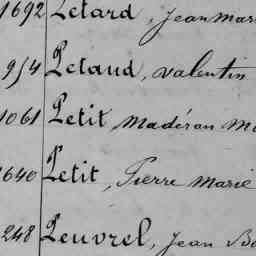 1692 Letard, Jean Mar
954 Letaud, Valentin
1061 Petit, Madéran M
640 Petit, Pierre Marie
248 Leuvrel, Jean Ba